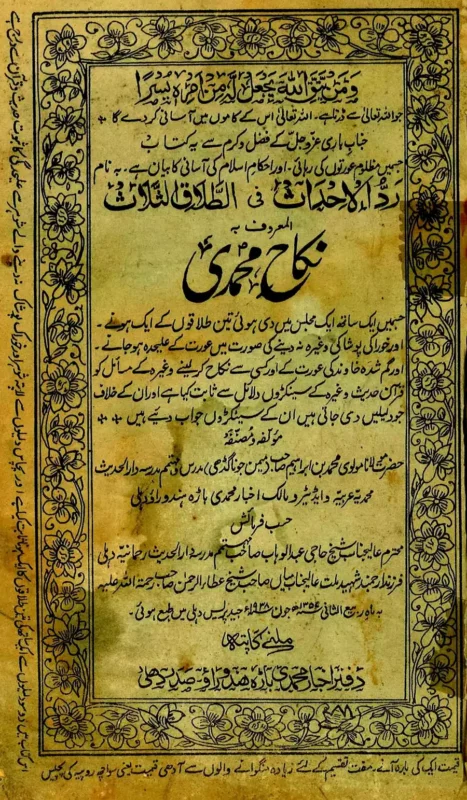 ومن يتق الله يجعل له من امره يسرا
جو اللہ تعالیٰ سے ڈرتا ہے۔ اللہ تعالیٰ اس کے کاموں میں آسانی کر دے گا
جناب باری عزوجل کے فضل وکرم سے یہ کتاب
جسمیں مظلوم عورتوں کی رہائی۔ اور احکام اسلام کی آسانی کا بیان ہے۔ بہ نام
رد الاحداث فی الطلاق الثلاث
المعروف بہ
نکاح محمدی
جسمیں ایک ساتھ ایک مجلس میں دی ہوئی تین طلاقوں کے ایک ہونے۔
اور خوراکی پوشاکی وغیرہ نہ دینے کی صورت میں عورت کے علیحدہ ہو جانے۔
اور گم شدہ خاوند کی عورت کے اور کسی سے نکاح کر لینے وغیرہ کے مسائل کو
قرآن حدیث وغیرہ کے سینکڑوں دلائل سے ثابت کیا ہے اور ان کے خلاف
جو دلیلیں دی جاتی ہیں ان کے سینکڑوں جواب دیے ہیں
مؤلفہ و مصنفہ
حضرت مولانا مولوی محمد بن ابراہیم صاحب (میمن جوناگڈھی) مدرس و مہتمم مدرسہ دار الحدیث
محمدیہ عربیہ و ایڈیٹر و مالک اخبار محمدی باڑہ ہندو راؤ دہلی
حسب فرمائش
محترم عالیجناب شیخ حاجی عبدالوہاب صاحب مہتمم مدرسہ دار الحدیث رحمانیہ دہلی
فرزند ارجمند شہید ملت عالیجناب میاں صاحب شیخ عطاء الرحمن صاحب رحمۃ اللہ علیہ
بہ ماہ ربیع الثانی ۱۳۵۷ھ جون ۱۹۳۸ء جید پریس دہلی میں طبع ہوئی۔
ملنے کا پتہ
دفتر اخبار محمدی باڑہ ہندو راؤ۔ صدر دہلی
قیمت ایک کی بارہ آنے۔ مفت تقسیم کے لئے زیادہ منگوانے والوں سے آدھی قیمت یعنی سوا چھ روپیہ کی پچیس